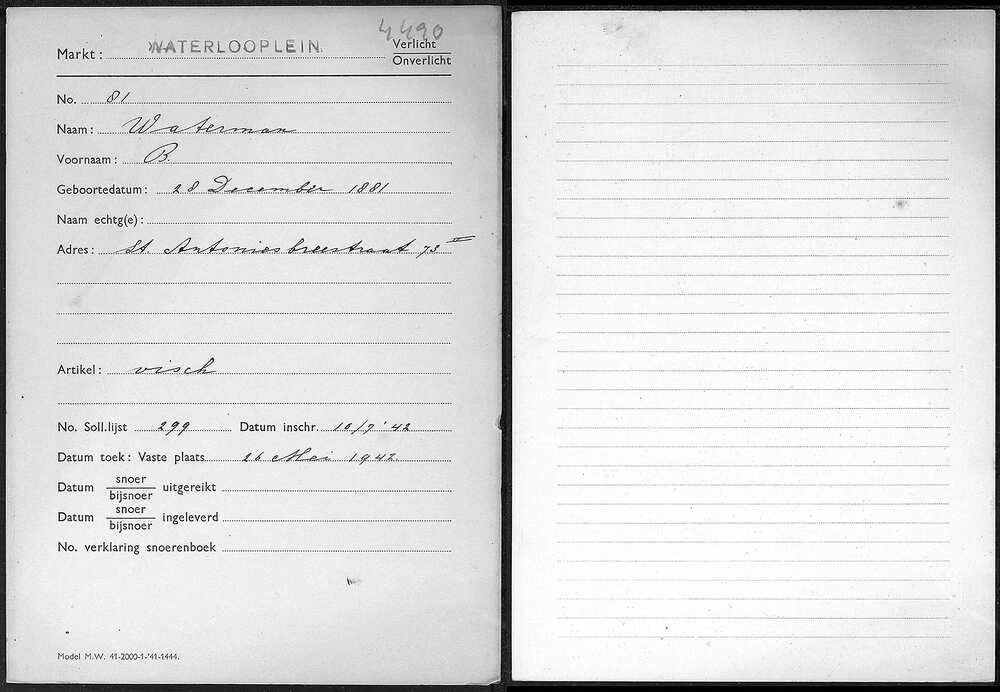 4490
Markt: WATERLOOPLEIN. Verlicht
Onverlicht
No. 81
Naam: Waterman
Voornaam: B.
Geboortedatum: 28 December 1881
Naam echtg(e):
Adres: St. Antoniesbreestraat 73 II
Artikel: visch
No. Soll.lijst 299 Datum inschr. 10/7 '42
Datum toek: Vaste plaats 26 Mei 1942
Datum snoer/bijsnoer uitgereikt
Datum snoer/bijsnoer ingeleverd
No. verklaring snoerenboek
Model M.W. 41-2000-1-'41-1444.